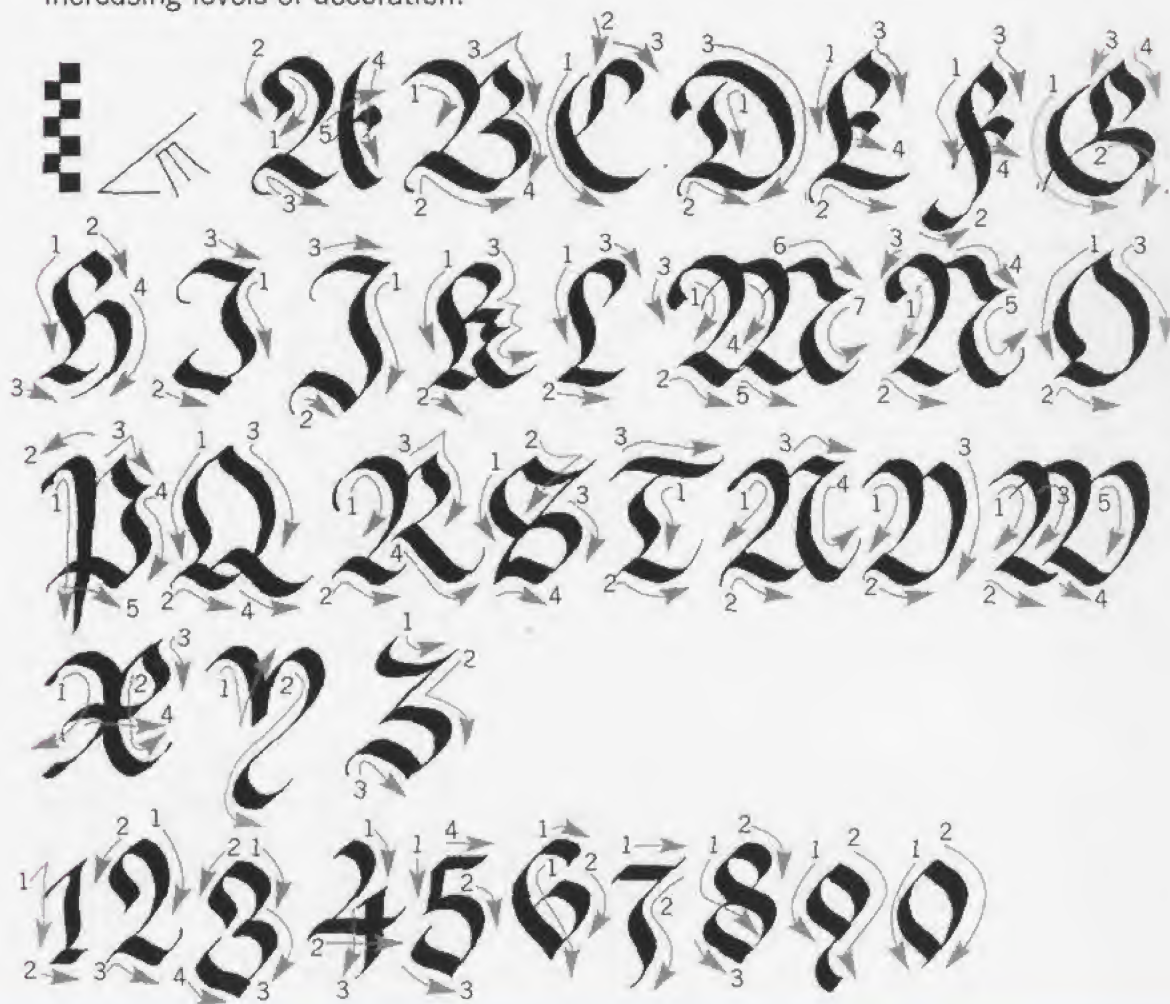 increasing levels of decoration.
A B C D E F G
H I J K L M N O
P Q R S T U V W
X Y Z
1 2 3 4 5 6 7 8 9 0